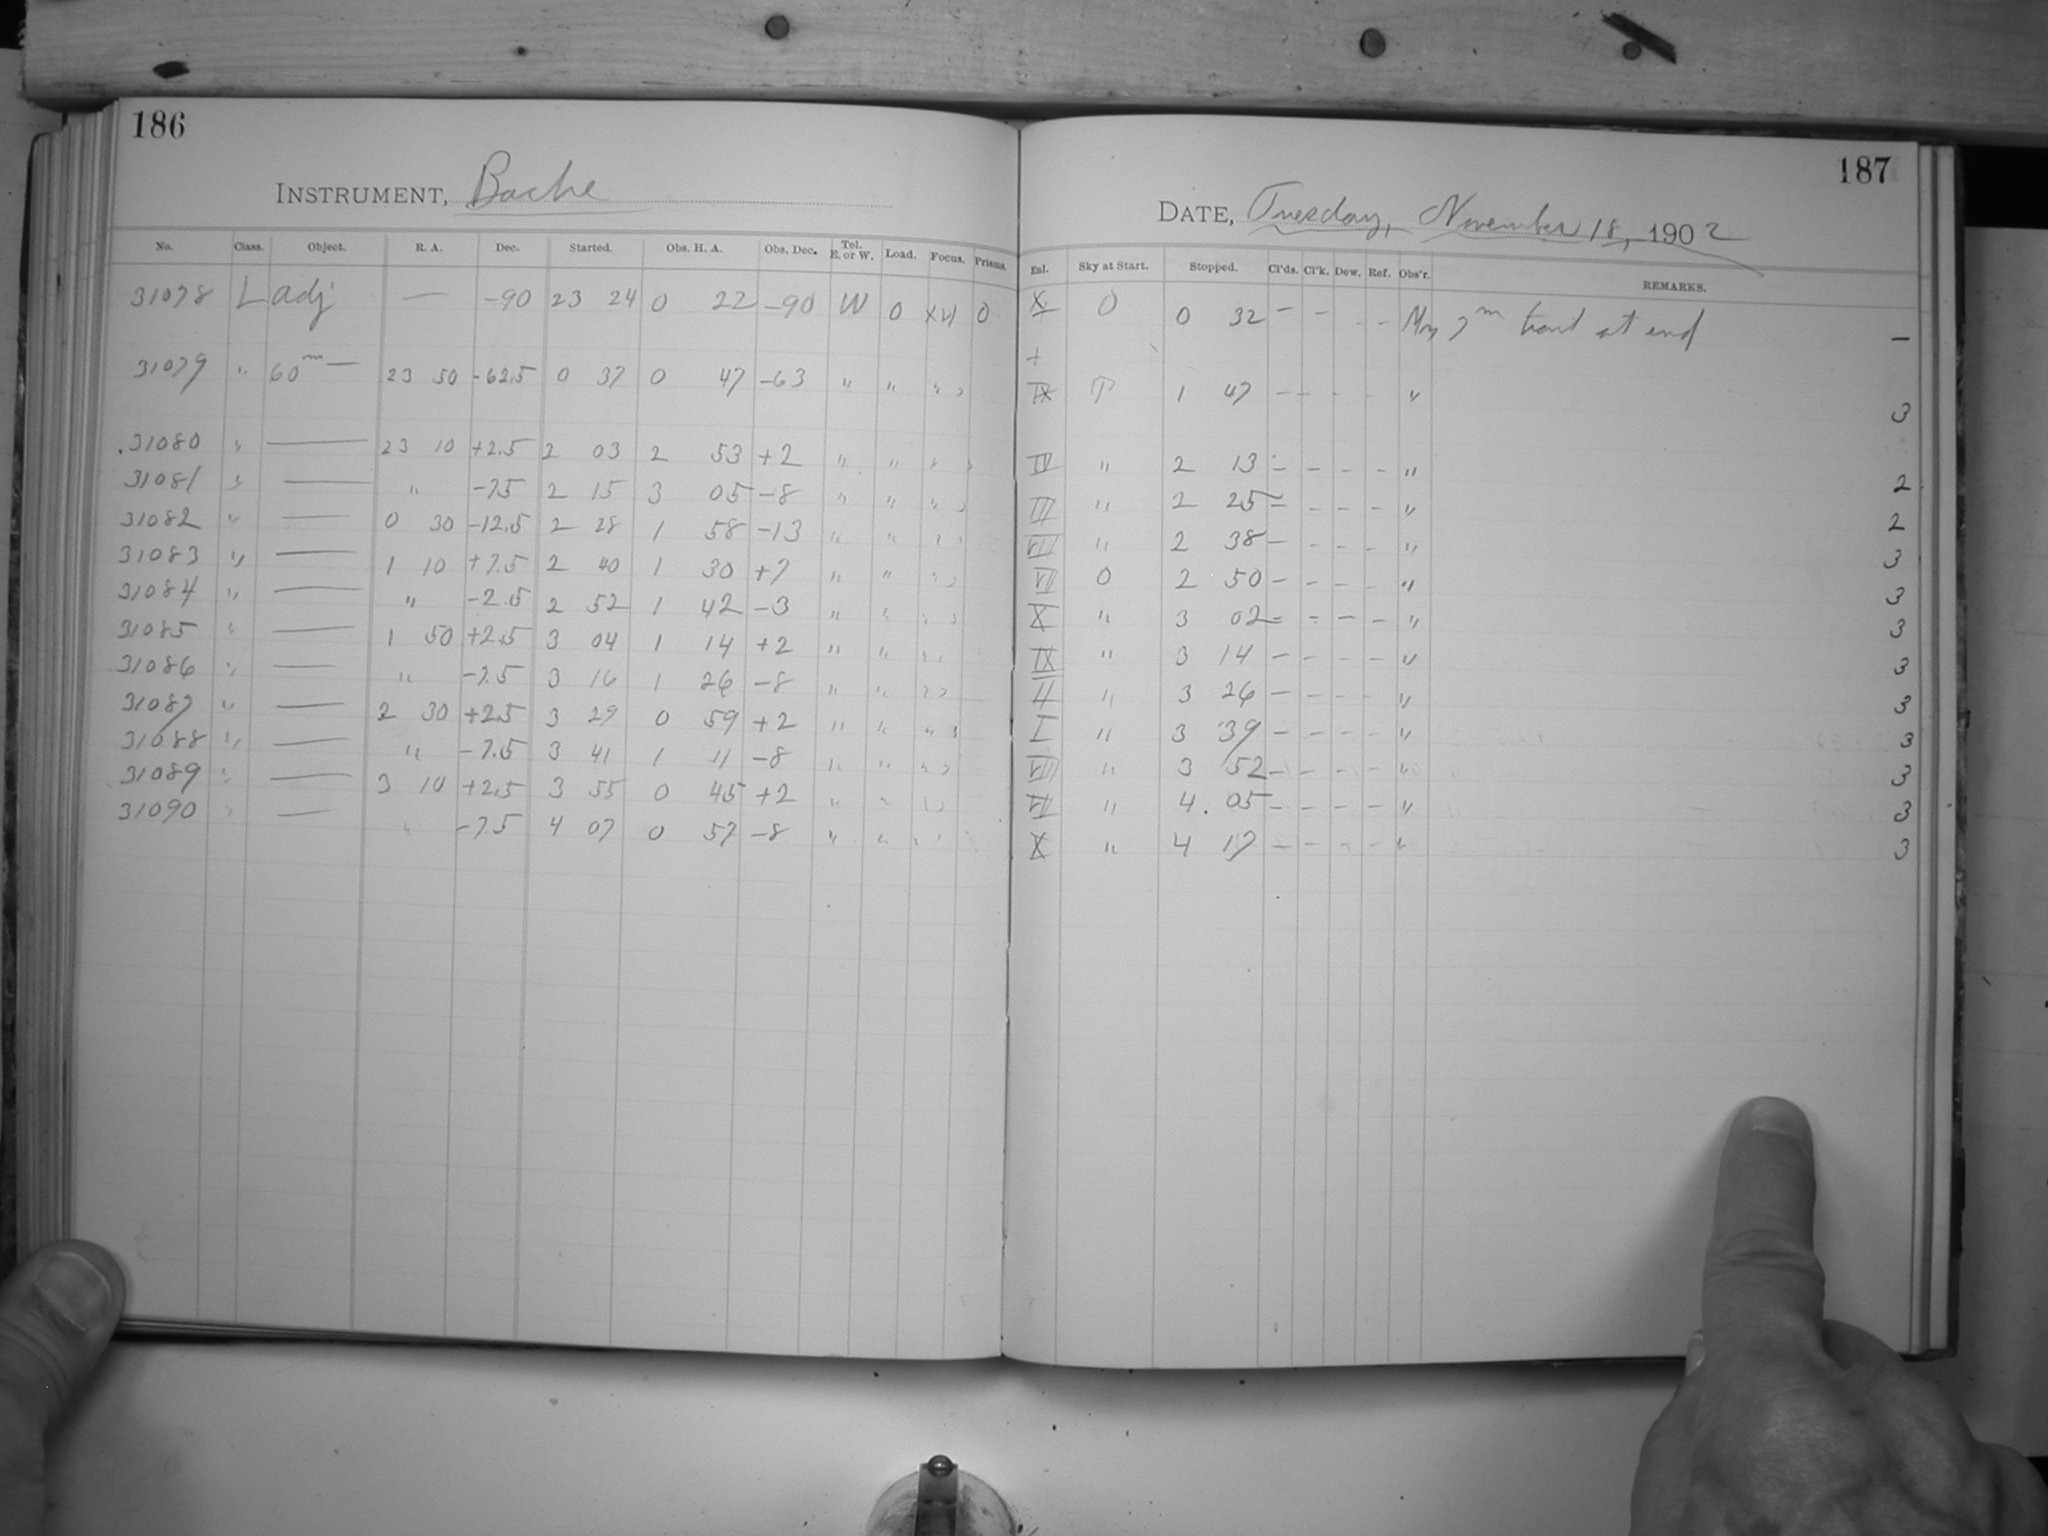 186
INSTRUMENT, Bache
No. Class. Object. R. A. Dec. Started. Obs. H. A. Obs. Dec. Tel. E. or W. Load. Focus. Prisms.
31078 L adj — -90 23 24 0 22 -90 W 0 0
31079 " 60m — 23 50 -62.5 0 37 0 47 -63 " " "
31080 " — 23 10 +2.5 2 03 2 53 +2 " " "
31081 " — " -7.5 2 15 3 05 -8 " " "
31082 " — 0 30 -12.5 2 28 1 58 -13 " " "
31083 " — 1 10 +7.5 2 40 1 30 +7 " " "
31084 " — " -2.5 2 52 1 42 -3 " " "
31085 " — 1 50 +2.5 3 04 1 14 +2 " " "
31086 " — " -7.5 3 16 1 26 -8 " " "
31087 " — 2 30 +2.5 3 29 0 59 +2 " " "
31088 " — " -7.5 3 41 1 11 -8 " " "
31089 " — 3 10 +2.5 3 55 0 45 +2 " " "
31090 " — " -7.5 4 07 0 57 -8 " " "
187
DATE, Tuesday, November 18, 1902
Enl. Sky at Start. Stopped. Cl'ds. Cl'k. Dew. Ref. Obs'r. REMARKS.
X 0 0 32 — — - — 7m at end —
+
IX T 1 47 — — - - " 3
IV " 2 13 — — — — " 2
III " 2 25 — — — — " 2
VIII " 2 38 — — — — " 3
VII 0 2 50 — — — — " 3
X " 3 02 — — — — " 3
IX " 3 14 — — — — " 3
II " 3 26 — — — — " 3
I " 3 39 — — — — " 3
VIII " 3 52 — — — — " 3
" 4 05 — — — — " 3
X " 4 17 — — — — " 3